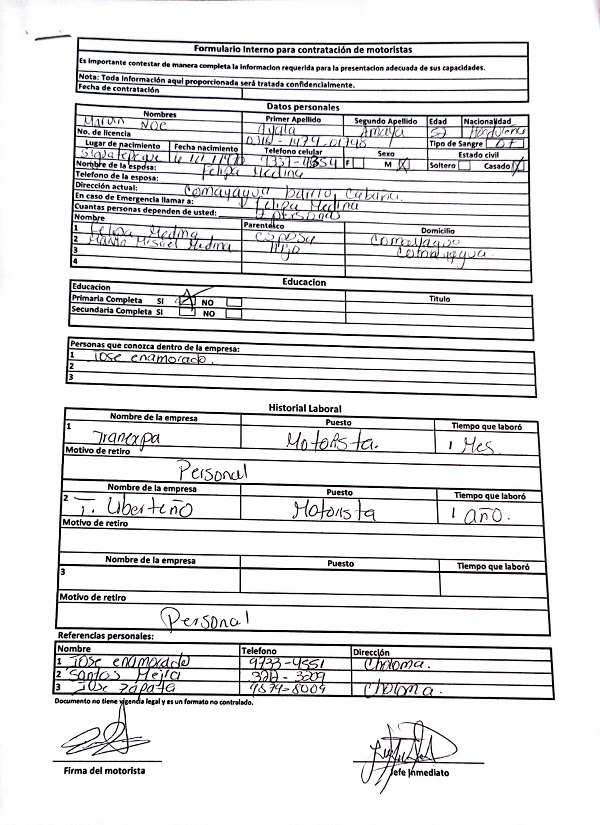 Formulario Interno para contratación de motoristas
Es importante contestar de manera completa la informacion requerida para la presentacion adecuada de sus capacidades.
Nota: Toda información aquí proporcionada será tratada confidencialmente.
Fecha de contratación
Datos personales
Nombres Primer Apellido Segundo Apellido Edad Nacionalidad
Noe Ayala Amaya 52 Hondureño
No. de licencia Tipo de Sangre
Lugar de nacimiento Fecha nacimiento Telefono celular Sexo Estado civil
Siguatepeque F M X Soltero Casado X
Nombre de la esposa: Felipa Medina
Telefono de la esposa:
Dirección actual: Comayagua barrio Cabana
En caso de Emergencia llamar a: Felipa Medina
Cuantas personas dependen de usted: 2 personas
Nombre Parentesco Domicilio
1 Felipa Medina esposa Comayagua
2 Medina Hijo Comayagua
3
4
Educacion
Educacion Titulo
Primaria Completa SI X NO
Secundaria Completa SI NO
Personas que conozca dentro de la empresa:
1 Jose enamorado.
2
3
Historial Laboral
Nombre de la empresa Puesto Tiempo que laboró
1 Tranexpa Motorista. 1 Mes
Motivo de retiro
Personal
Nombre de la empresa Puesto Tiempo que laboró
2 T. Liberteño Motorista 1 año.
Motivo de retiro
Nombre de la empresa Puesto Tiempo que laboró
3
Motivo de retiro
Personal
Referencias personales:
Nombre Telefono Dirección
1 Jose enamorado 9733-4551 Choloma.
2 Santos Mejia
3 Jose Zapata 9879-8009 Choloma.
Documento no tiene vigencia legal y es un formato no contralado.
Firma del motorista Jefe Inmediato